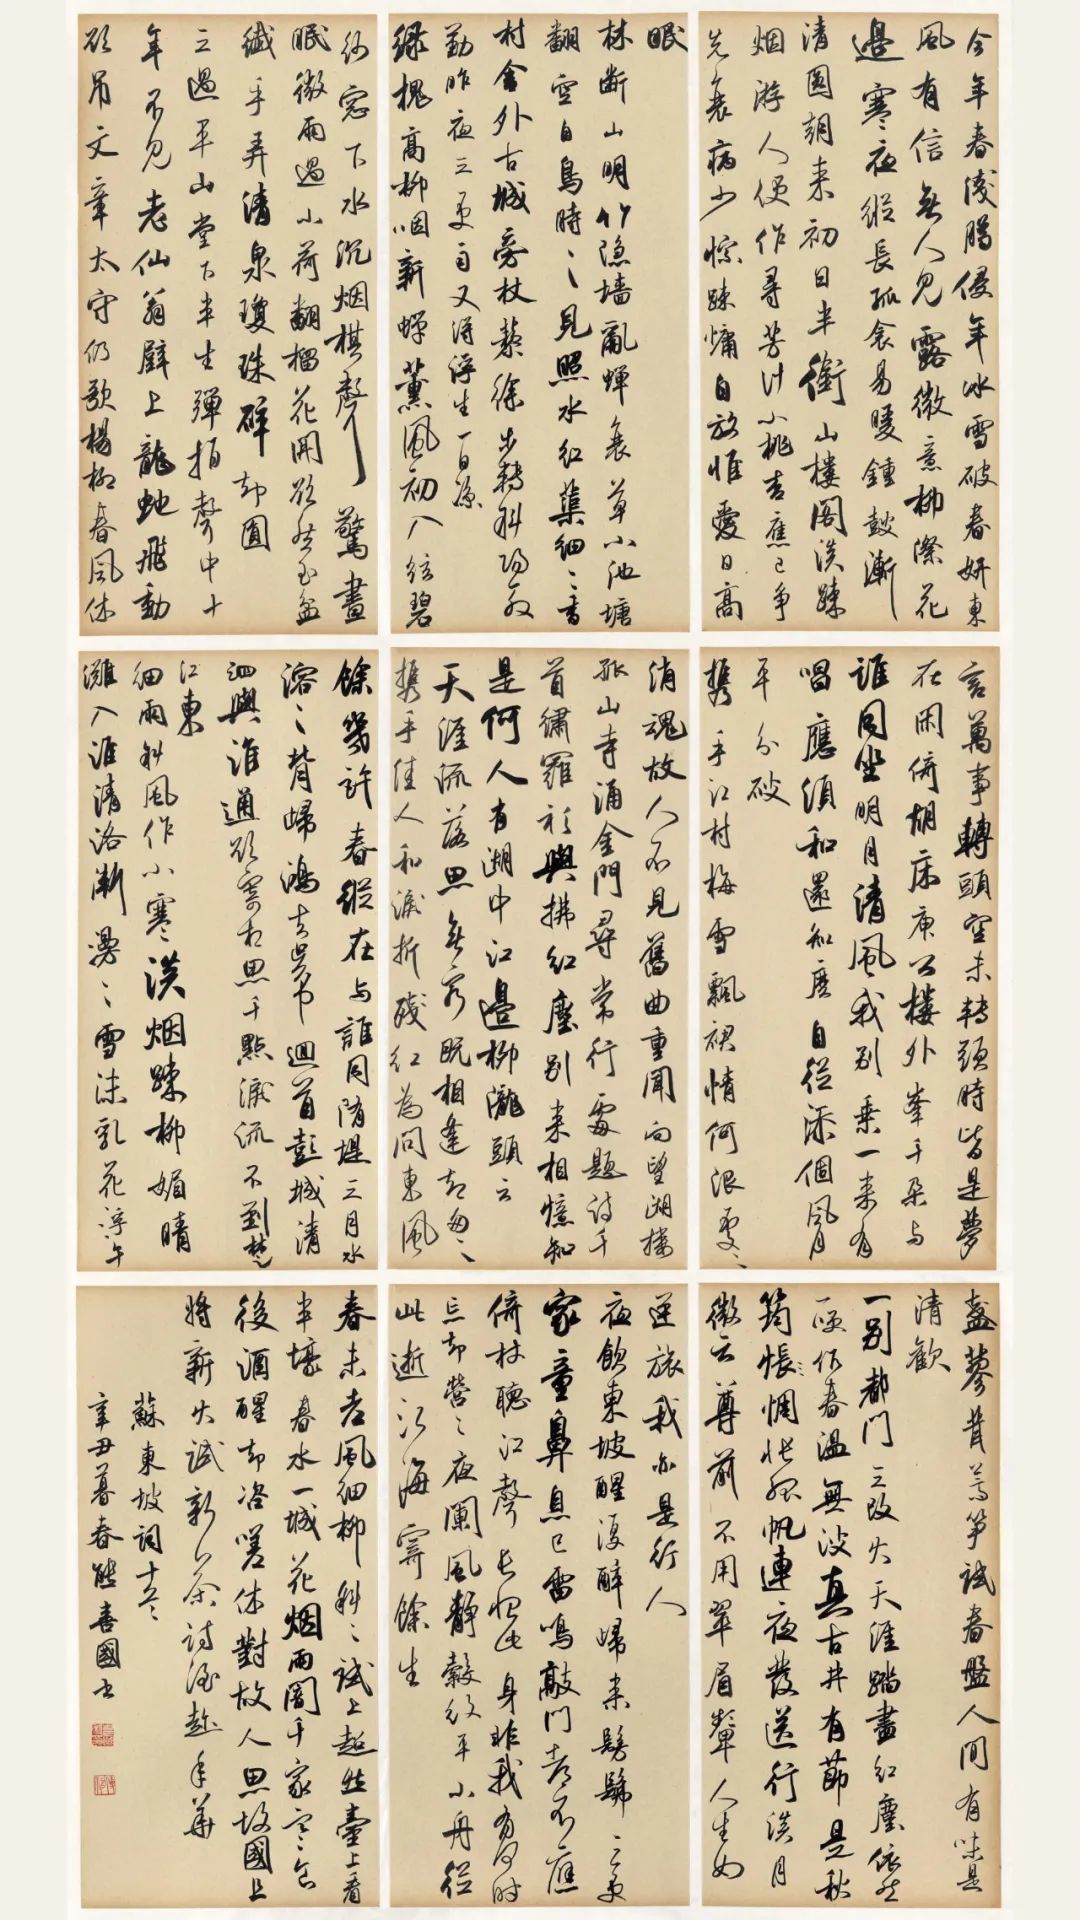 今年春淺臘侵年冰雪破春妍東
風有信無人見露微意柳際花
邊寒夜縱長孤衾易暖鍾鼓漸
清圓朝來初日半銜山樓閣淡疎
烟游人便作尋芳計小桃杏應已爭
先衰病少悰疎慵自放惟愛日高
眠
林斷山明竹隐墙亂蟬衰草小池塘
翻空白鳥時時見照水紅蕖細細香
村舍外古城旁杖藜徐步轉斜陽殷
勤昨夜三更雨又得浮生一日凉
綠槐高柳咽新蟬薰風初入絃碧
紗窓下水沉烟棋聲驚晝
眠微雨過小荷翻榴花開欲然玉盆
纖手弄清泉瓊珠碎却圓
三過平山堂下半生彈指聲中十
年不見老仙翁壁上龍蛇飛動
欲吊文章太守仍歌楊柳春風休
言萬事轉頭空未轉頭時皆是夢
在閑倚胡床庾公樓外峯千朶与
誰同坐明月清風我别乘一来有
唱應須和還知麽自從添個風月
平分破
携手江村梅雪飄裙情何限處處
消魂故人不見舊曲重聞向望湖樓
孤山寺涌金門尋常行處題詩千
首繡羅衫與拂紅塵别来相憶知
是何人有湖中月江邊柳隴頭云
天涯流落思無窮既相逢却匆匆
携手佳人和淚折殘紅為問東風
餘幾許春縱在与誰同隋堤三月水
溶溶背歸鴻去吳中迴首彭城清
泗與淮通欲寄相思千點淚流不到楚
江東
細雨斜風作小寒淡烟疎柳媚晴
灘入淮清洛漸漫漫雪沫乳花浮午
盏蓼茸蒿笋試春盤人间有味是
清歡
一别都門三改火天涯踏盡紅塵依然
一笑作春温無波真古井有節是秋
筠惆悵孤帆連夜發送行淡月
微云尊前不用翠眉颦人生如
逆旅我亦是行人
夜飲東坡醒復醉歸来髣髴三更
家童鼻息已雷鳴敲門都不應
倚杖聽江聲长恨此身非我有何时
忘却營營夜闌風靜縠紋平小舟從
此逝江海寄餘生
春未老風細柳斜斜試上超然臺上看
半壕春水一城花烟雨闇千家寒食
後酒醒却咨嗟休對故人思故國且
將新火試新茶詩酒趁年華
蘇東坡詞十首
辛丑暮春熊喜國书